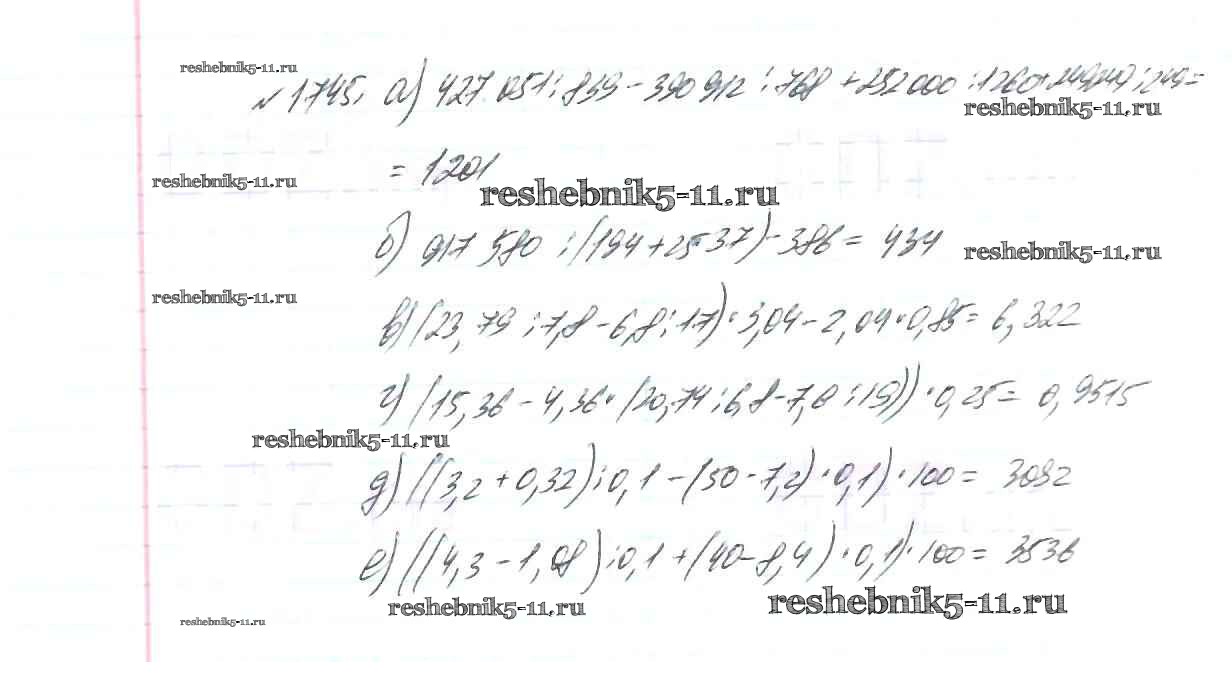 reshebnik5-11.ru
№1745. а) 427 051 : 839 - 390 912 : 768 + 252 000 : 1260 + 249 249 : 249 =
reshebnik5-11.ru
= 1201
reshebnik5-11.ru
reshebnik5-11.ru
б) 917 580 : (194 + 25 · 37) - 386 = 434
reshebnik5-11.ru
reshebnik5-11.ru
в) (23,79 : 7,8 - 6,8 : 17) · 3,04 - 2,04 · 0,85 = 6,322
г) (15,36 - 4,36 · (20,74 : 6,8 - 7,6 : 19)) · 0,25 = 0,9515
reshebnik5-11.ru
д) ((3,2 + 0,32) : 0,1 - (50 - 7,2) · 0,1) · 100 = 3092
е) ((4,3 - 1,08) : 0,1 + (40 - 8,4) · 0,1) · 100 = 3536
reshebnik5-11.ru
reshebnik5-11.ru
reshebnik5-11.ru